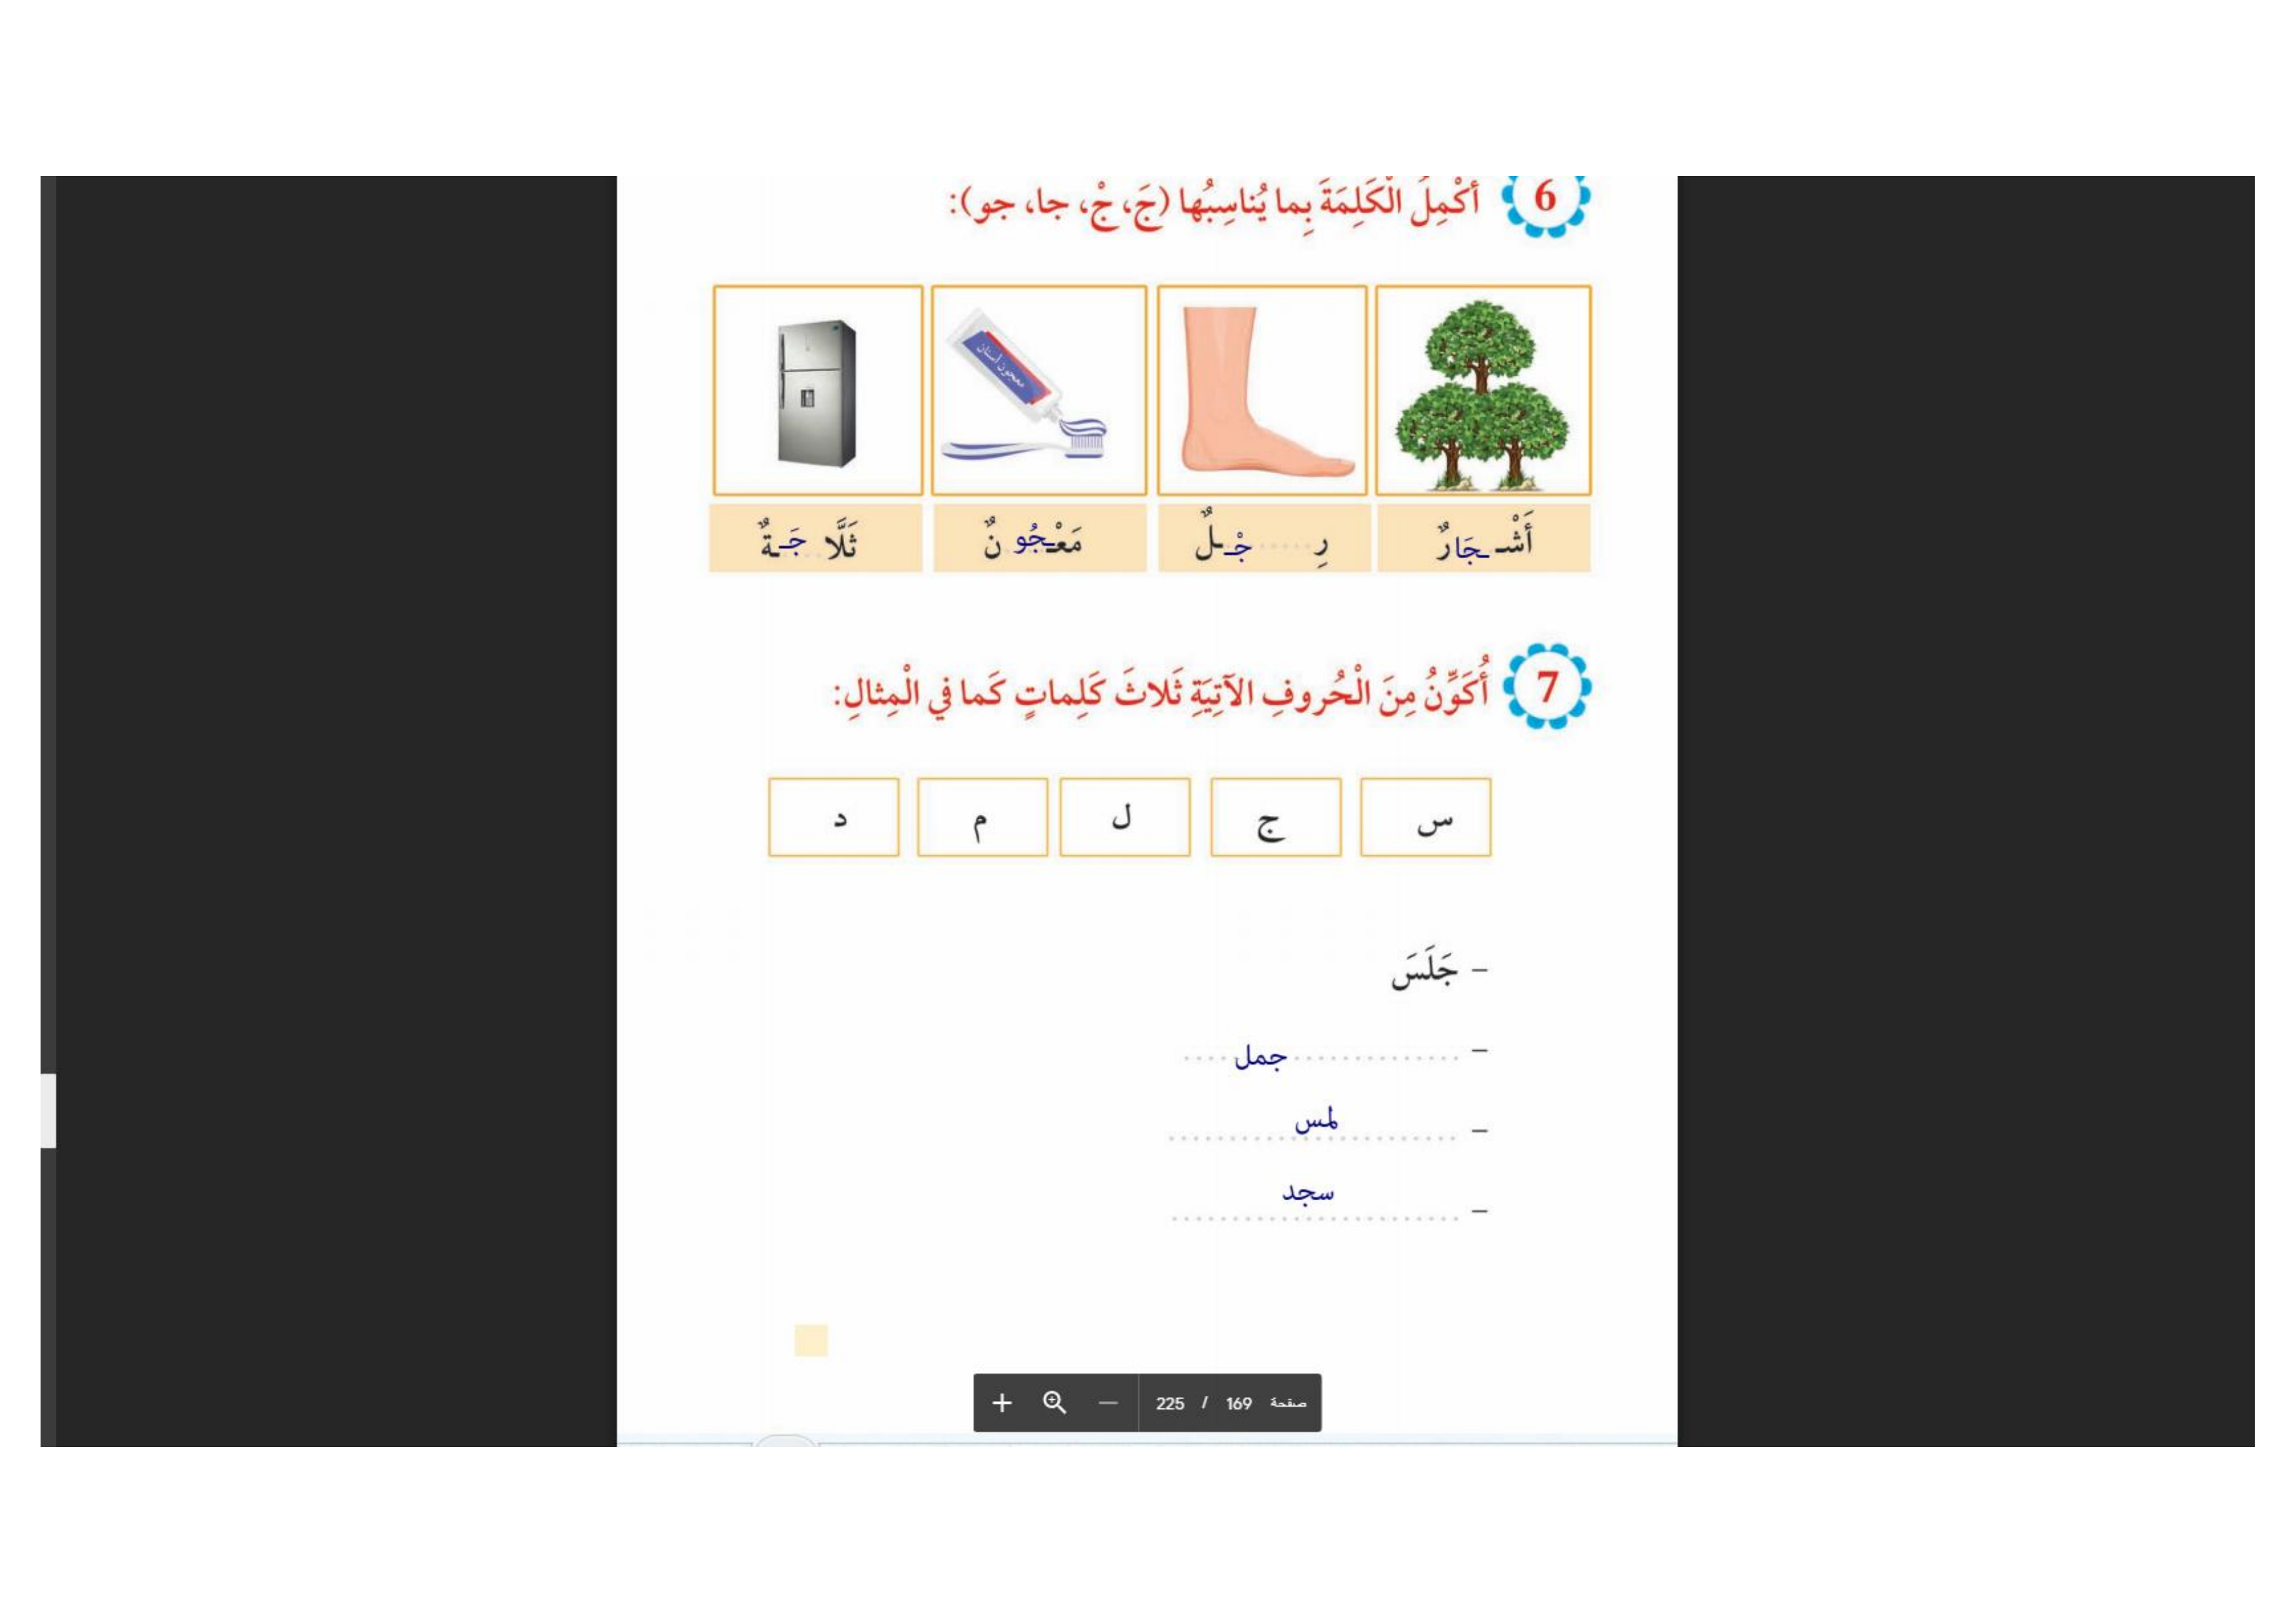 6 أَكْمِلُ الْكَلِمَةَ بِما يُناسِبُها (جَ، جْ، جا، جو):
معجون أسنان
أَشْـجَارٌ رِ.....جْـلٌ مَعْـجُونٌ ثَلَّاجَـةٌ
7 أُكَوِّنُ مِنَ الْحُروفِ الآتِيَةِ ثَلاثَ كَلِماتٍ كَما في الْمِثالِ:
س ج ل م د
– جَلَسَ
– جمل
– لمس
– سجد
صفحة 169 / 225 — +